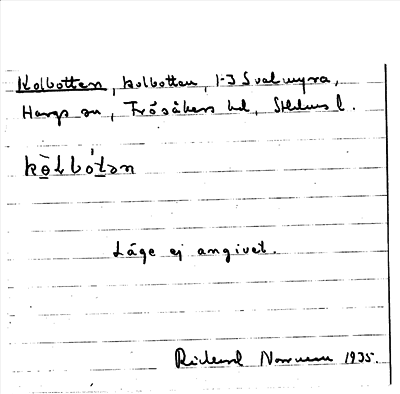 Kolbotten, kolbotten, 1-3 Svalmyra,
Hargs sn, Frösåkers hd, Sthlms l.
kò̱lbótən
Läge ej angivet.
Rickard Norrman 1935.